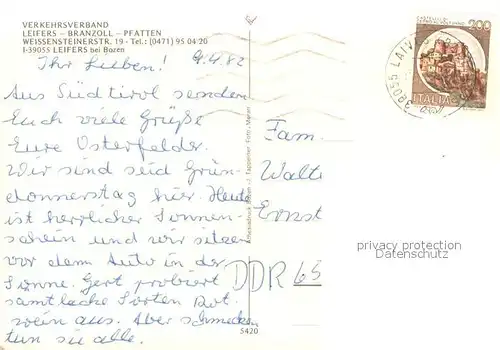 VERKEHRSVERBAND
LEIFERS - BRANZOLL - PFATTEN
WEISSENSTEINERSTR. 19 - Tel.: (0471) 95 04 20
I-39055 LEIFERS bei Bozen
Ihr Lieben! 9.4.82
Aus Südtirol senden
Euch viele Grüße
Eure Osterfelder.
Wir sind seid Grün-
donnerstag hier. Heute
ist herrlicher Sonnen-
schein und wir sitzen
vor dem Auto in der
Sonne. Gert probiert
samtliche Sorten Rot-
wein aus. Aber schmecken
tun sie alle.
5420
Tappeiner Foto, Meran
200
ITALIA
39055 LAIV
Fam.
Walte
Ernst
DDR 65
privacy protection
Datenschutz